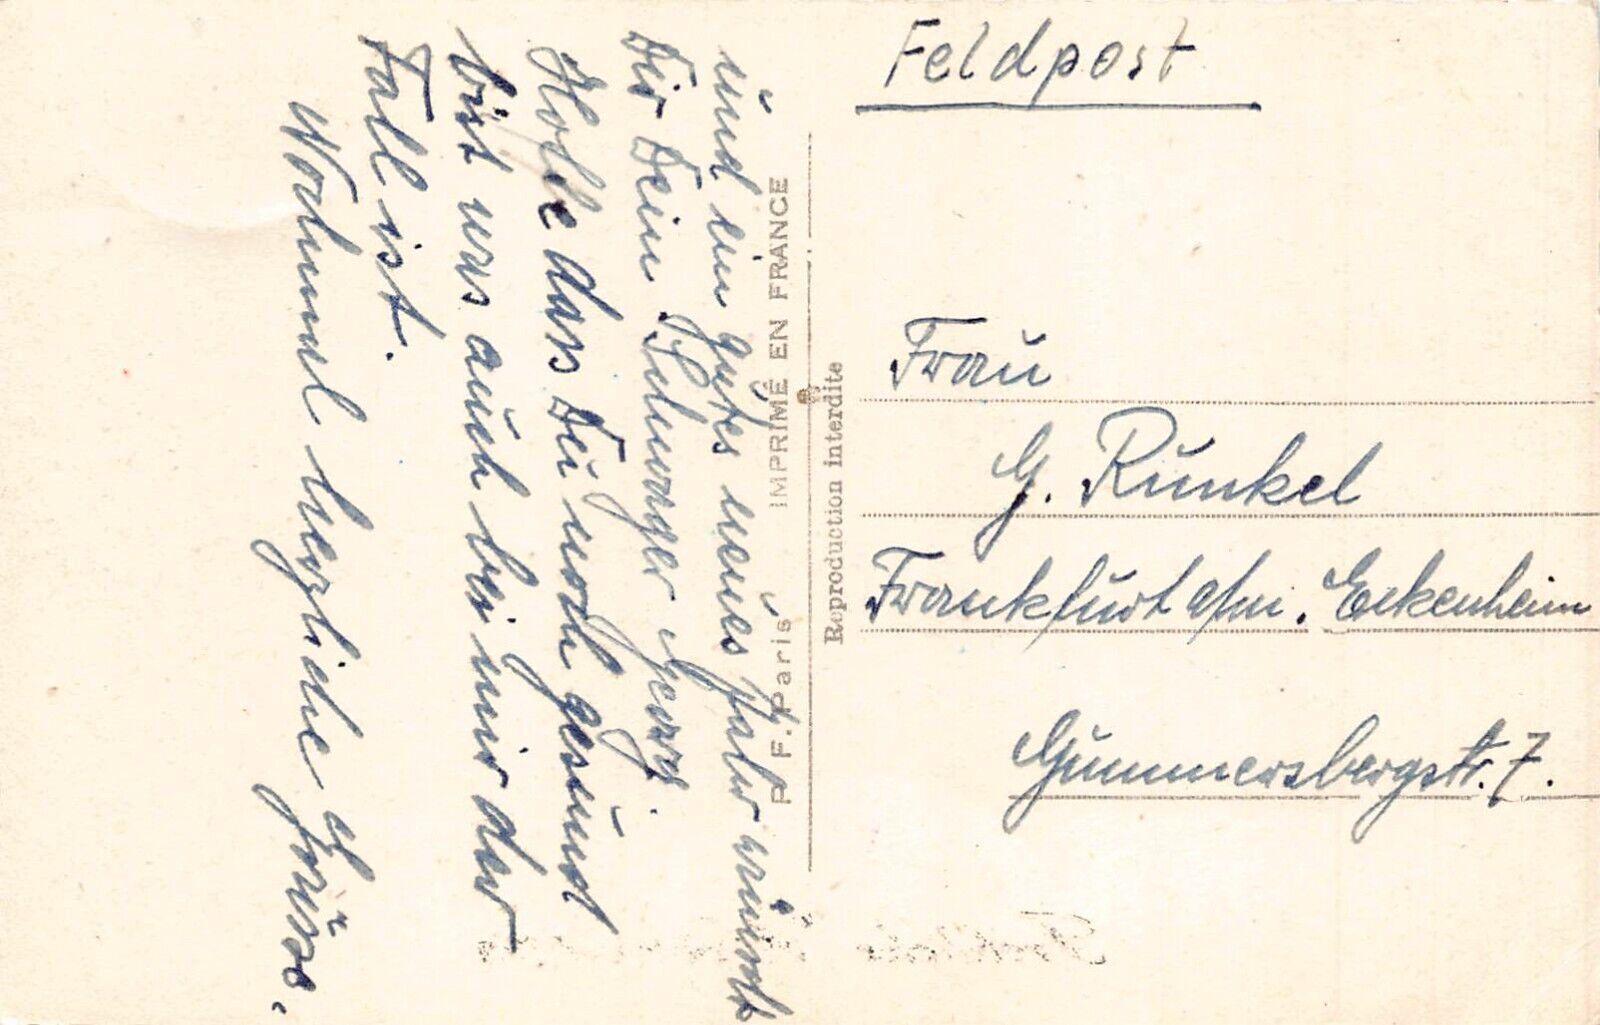 und ein gutes neues Jahr wünscht
Dir Dein Schwager Georg.
Hoffe dass Du noch gesund
bist was auch bei mir der
Fall ist.
Nochmal herzliche Grüsse.
P. F. Paris IMPRIMÉ EN FRANCE
Reproduction interdite
Feldpost
Frau
G. Runkel
Frankfurt a/m. Eckenheim
Gummersbergstr. 7.